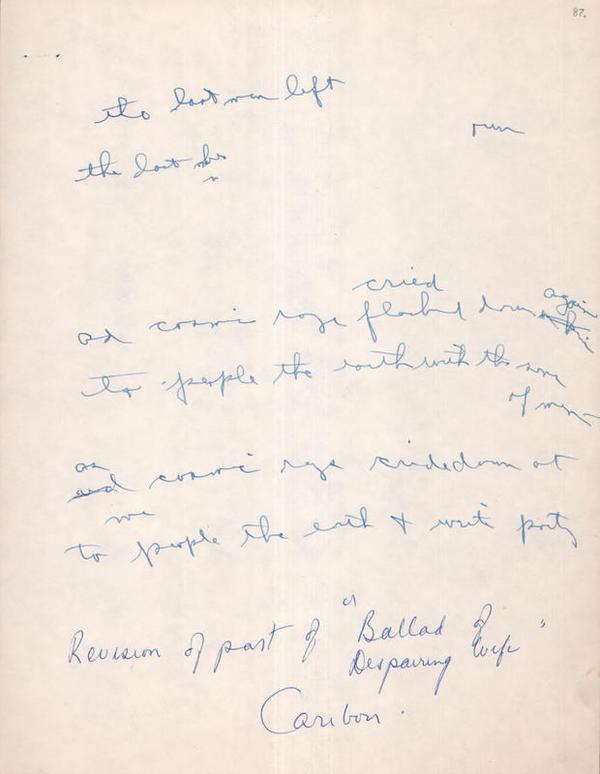 87.
the last man left
run
the last
cried
and cosmic rays flashed down again
to people the earth with the son
of man
as
and cosmic rays cried down at
me
to people the earth & write poetry
Revision of part of "Ballad of
Despairing Wife"
Caribou.